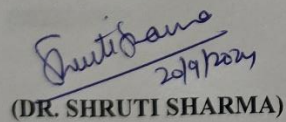 Shruti Sharma
20/9/2024
(DR. SHRUTI SHARMA)